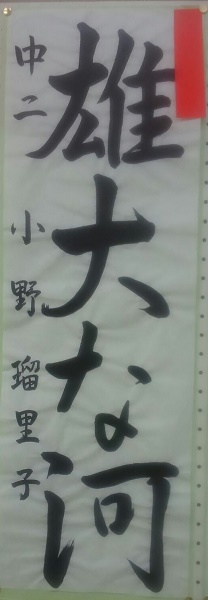 雄大な河
中二 小野瑠里子